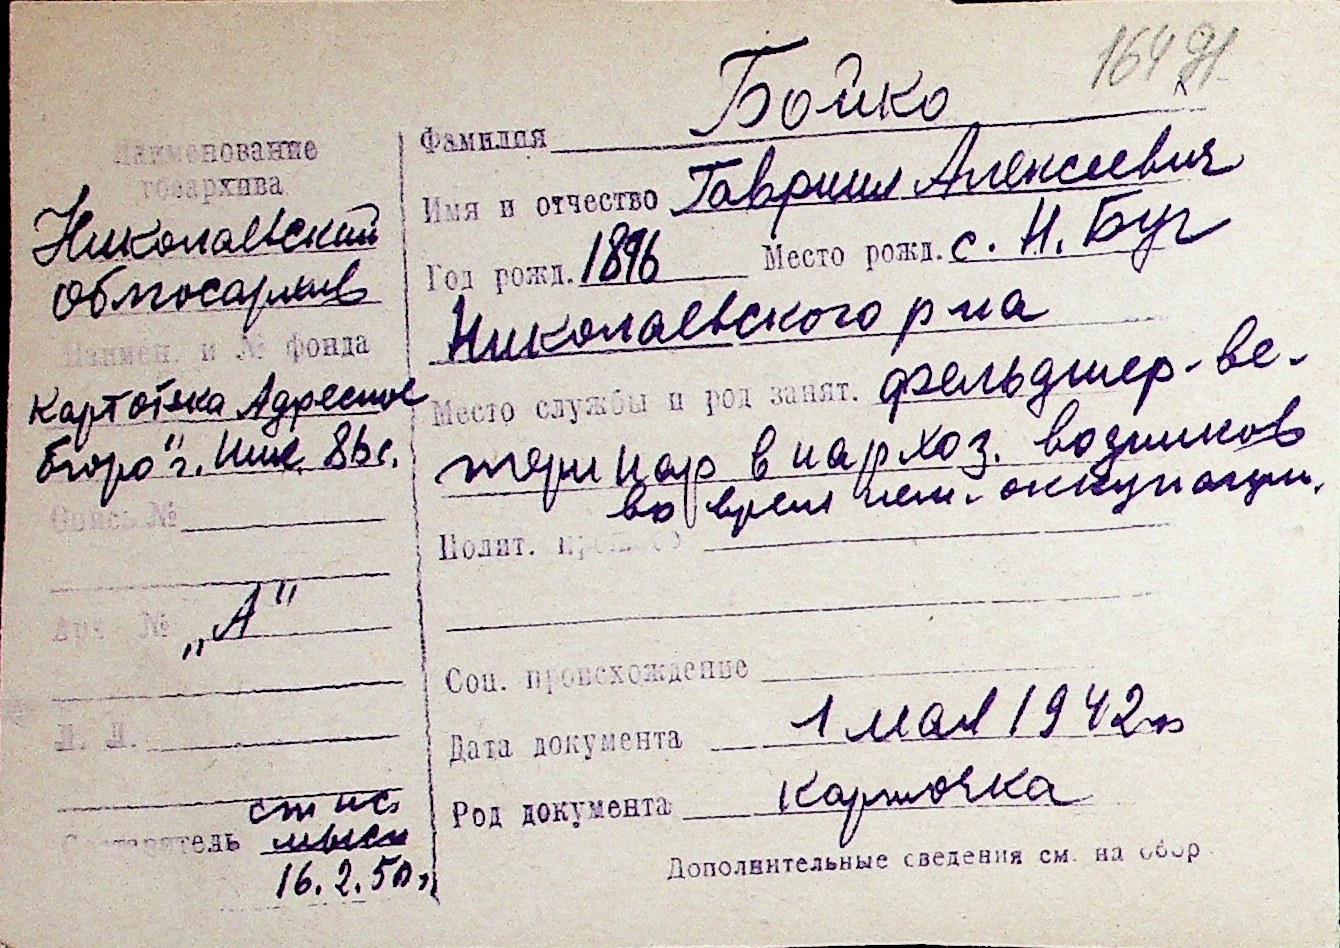 16491
Наименование
госархива
Николаевский
облгосархив
Наимен. и № фонда
Картотека Адресное
бюро" г. Ник. 8bс.
Опись №
Арх. №
„А"
Л. Л.
Составитель
16.2.50г.
Фамилия Бойко
Имя и отчество Гавриил Алексеевич
Год рожд. 1896 Место рожд. с. Н. Буг
Николаевского р-на
Место службы и род занят. фельдшер-ве-
теринар в нархоз. возчиков
во время нем. оккупации.
Полит.
Соц. происхождение
Дата документа 1 мая 1942 г.
Род документа карточка
Дополнительные сведения см. на обор.